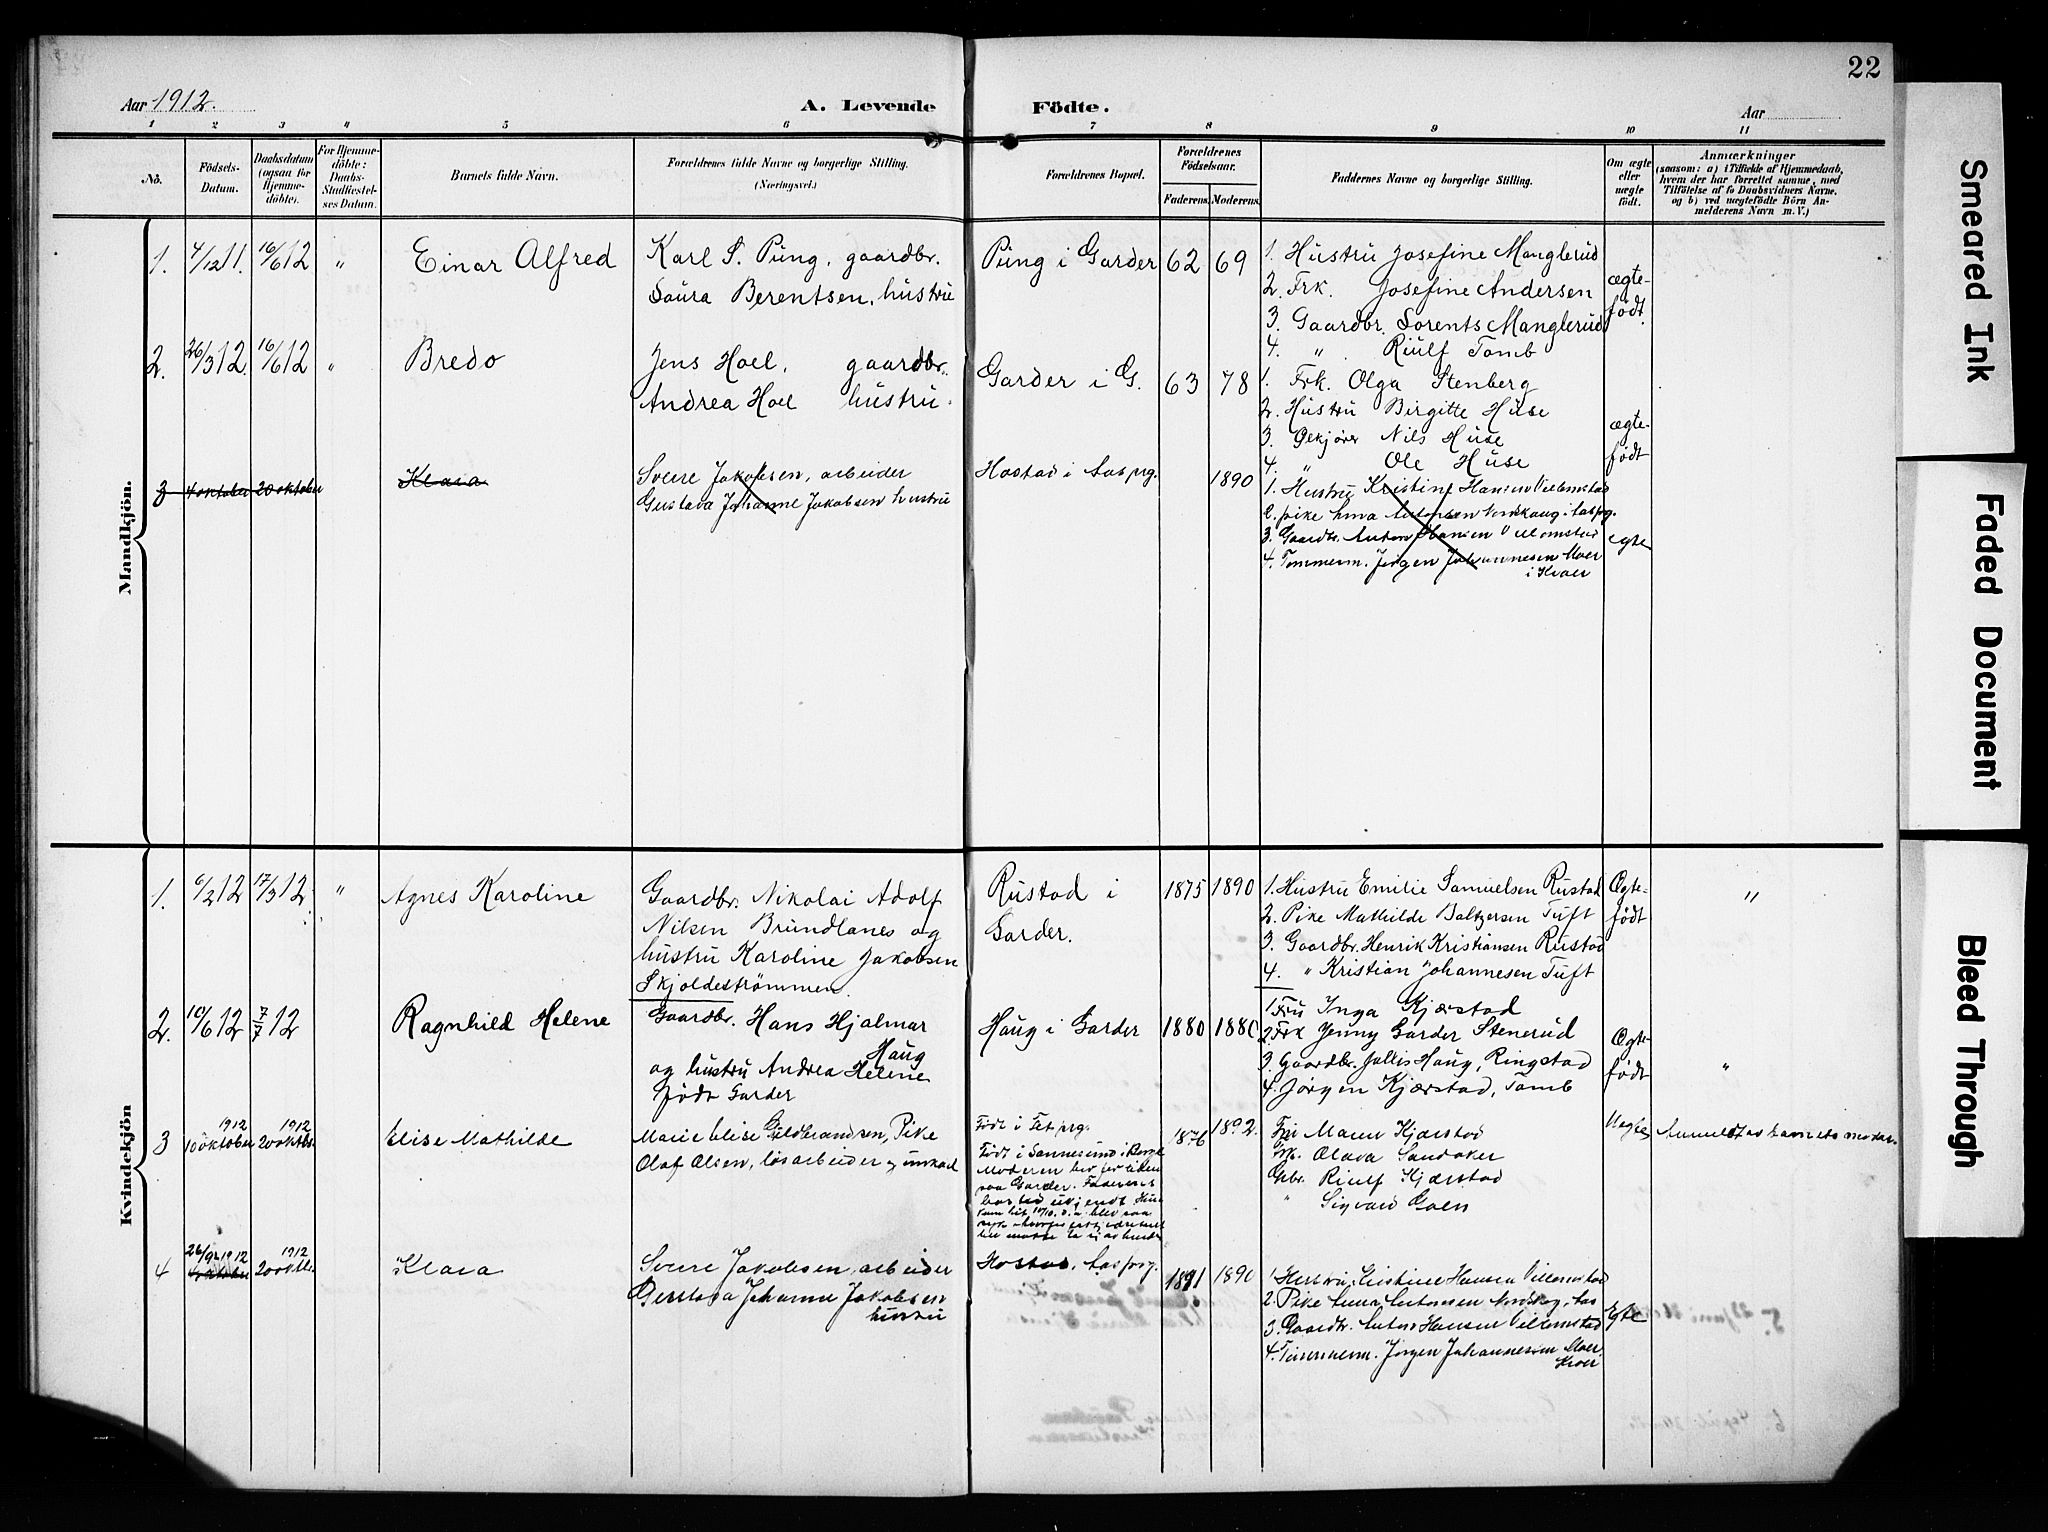 22
Aar 1912.
A. Levende Födte.
Aar
1 2 3 4 5 6 7 8 9 10 11
No.
Födsels-Datum.
Daabsdatum (ogsaa for Hjemme-döbte).
For Hjemme-döbte: Daabs-Stadfæstel-ses Datum.
Barnets fulde Navn.
Forældrenes fulde Navne og borgerlige Stilling.
(Næringsvei.)
Forældrenes Bopæl.
Forældrenes Födselsaar.
Faderens.
Moderens.
Faddernes Navne og borgerlige Stilling.
Om ægte eller uægte født.
Anmærkninger
(saasom: a) i Tilfælde af Hjemmedaab, hvem der har forrettet samme, med Tilföielse af to Daabsvidners Navne, og b) ved uægtefödte Börn An-melderens Navn m. V.)
Mandkjön.
1. 4/12 11. 16/6 12 " Einar Alfred
Karl S. Pung, gaardbr.
Laura Berentsen, hustru
Pung i Garder 62 69
1. Hustru Josefine Manglerud
2. Frk. Josefine Andersen
3. Gaardbr. Lorents Manglerud
4. " Riulf Tomb
ægte-født.
2. 26/3 12. 16/6 12 " Bredo
Jens Hoel, gaardbr.
Andrea Hoel hustru.
Garder i G. 63 78
1. Frk. Olga Stenberg
2. Hustru Birgitte Huse
3. Ølkjører Nils Huse
4. " Ole Huse
ægte-født
3 4 oktober 20 oktober Klara
Sverre Jakobsen, arbeider
Gustava Johanne Jakobsen hustru
Hostad i Aas prg. 1890
1. Hustru Kristine Hansen Villemstad
2. pike Anna Antonsen Nordskaug i Aas prg.
3. Gaardbr. Anton Hansen Villemstad
4. Tømmerm. Jørgen Johannesen Moer
i Kroer
egte
Kvindekjön
1. 6/2 12 17/3 12 " Agnes Karoline
Gaardbr. Nikolai Adolf
Nilsen Brundlanes og
hustru Karoline Jakobsen
Skjoldestrømmen.
Rustad i
Garder.
1875 1890
1. Hustru Emilie Samuelsen Rustad
2. Pike Mathilde Baltzersen Tuft
3. Gaardbr. Henrik Kristiansen Rustad
4. " Kristian Johannesen Tuft
Ægte-født
"
2. 10/6 12 7/7 12 Ragnhild Helene
Gaardbr. Hans Hjalmar
Haug
og hustru Andrea Helene
født Garder
Haug i Garder 1880 1880
1. Fru Inga Kjærstad
2. Frk Jenny Garder Stenerud
3. Gaardbr. Jallis Haug, Ringstad
4. Jørgen Kjærstad, Tomb
Ægte-født
"
3 1912 10 oktober 1912 20 oktbr. Elise Mathilde
Marie Elise Guldbrandsen, Pike
Olaf Olsen, løsarbeider, unkarl
Født i Fet prg.
Født i Sannesund i Borge
Moderen bor for tiden
paa Garder. Faderens
bosted ukjendt.
1876 1892.
Fru Maren Kjærstad
Frk. Olava Sandaker
Gbr. Riulf Kjærstad
" Sigvard Goen
Uegte
Anmeldt av barnets moder
4 26/9 1912 4 oktober 1912 20 oktbr. Klara
Sverre Jakobsen, arbeider
Gustava Johanne Jakobsen
hustru
Hostad, Aas prg. 1891 1890
1. Hustru Kristine Hansen Villemstad
2. Pike Anna Antonsen Nordskog, Aas
3. Gaardbr. Anton Hansen Villemstad
4. Tømmerm. Jørgen Johannesen Moer
Kroer
Egte
Smeared Ink
Faded Document
Bleed Through